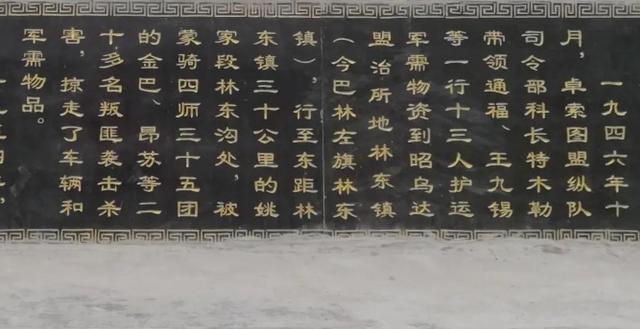 一九四六年十
月，卓索图盟纵队
司令部科长特木勒
带领通福、王九锡
等一行十三人护运
军需物资到昭乌达
盟治所地林东镇
（今巴林左旗林东
镇），行至东距林
东镇三十公里的姚
家段林东沟处，被
蒙骑四师三十五团
的金巴、昂苏等二
十多名叛匪袭击杀
害，掠走了车辆和
军需物品。